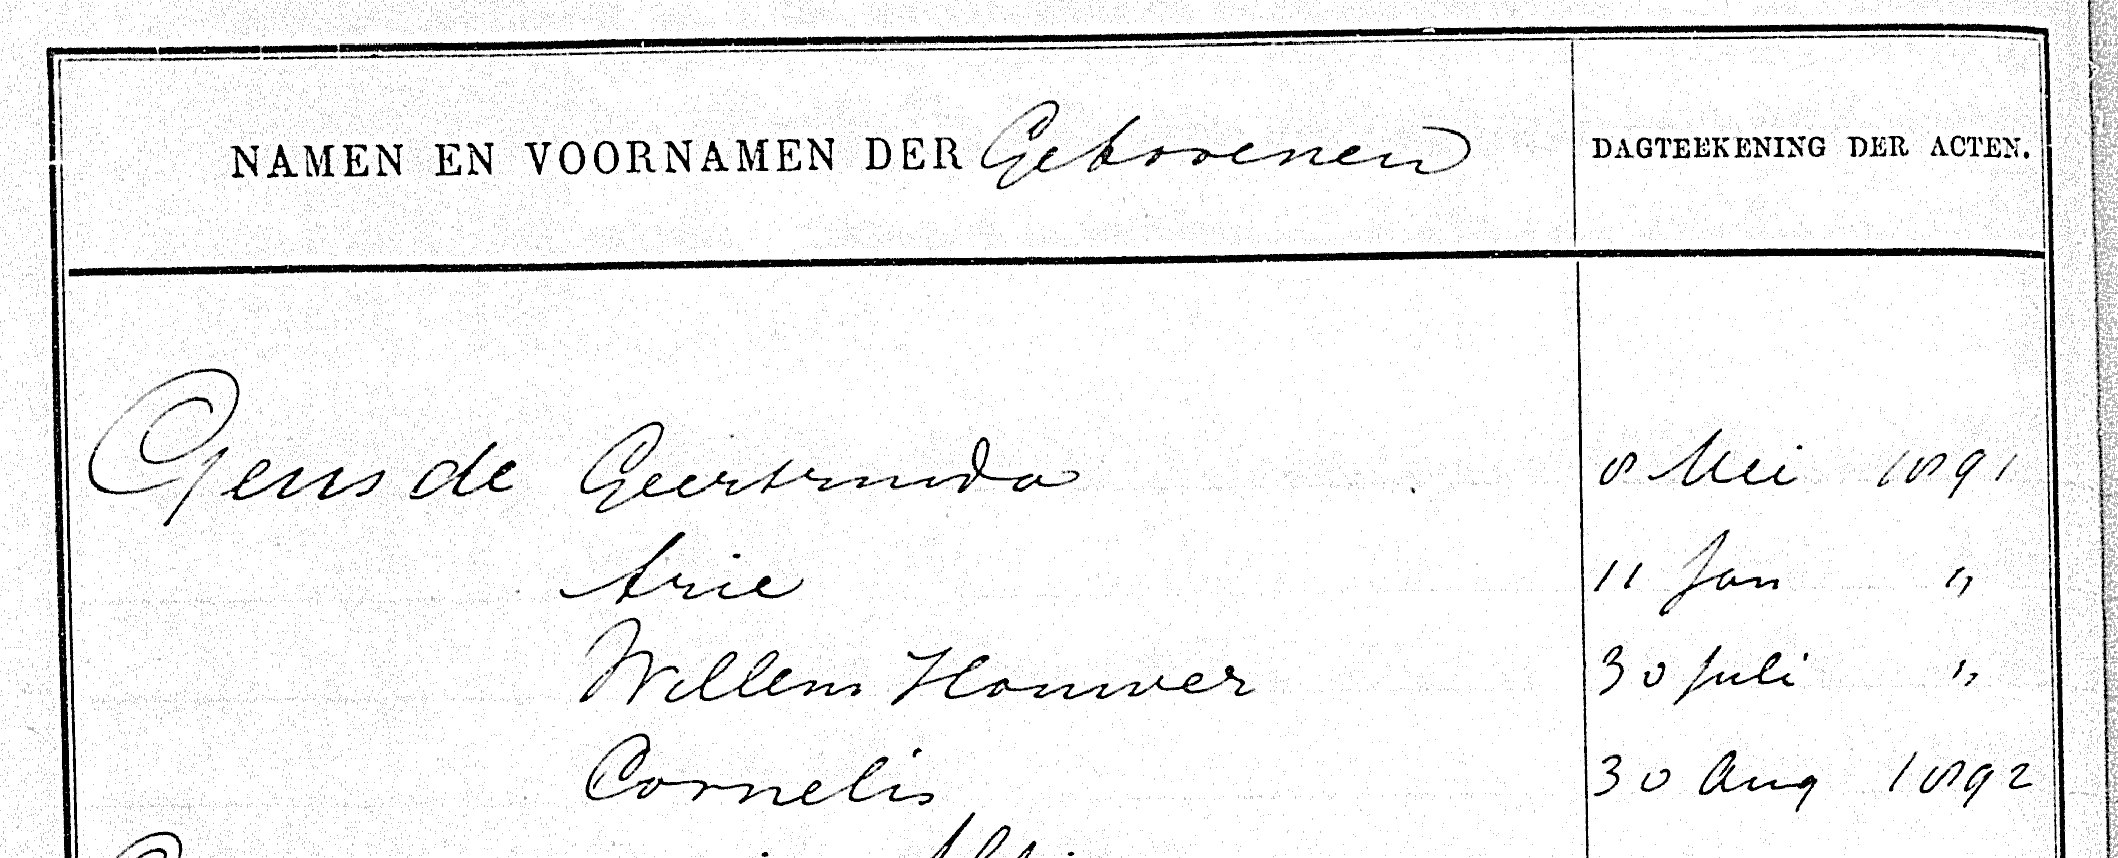 NAMEN EN VOORNAMEN DER Geborenen DAGTEEKENING DER ACTEN.
Geus de Geertruida 8 Mei 1891
Arie 11 Jan "
Willem Houwer 30 Juli "
Cornelis 30 Aug 1892